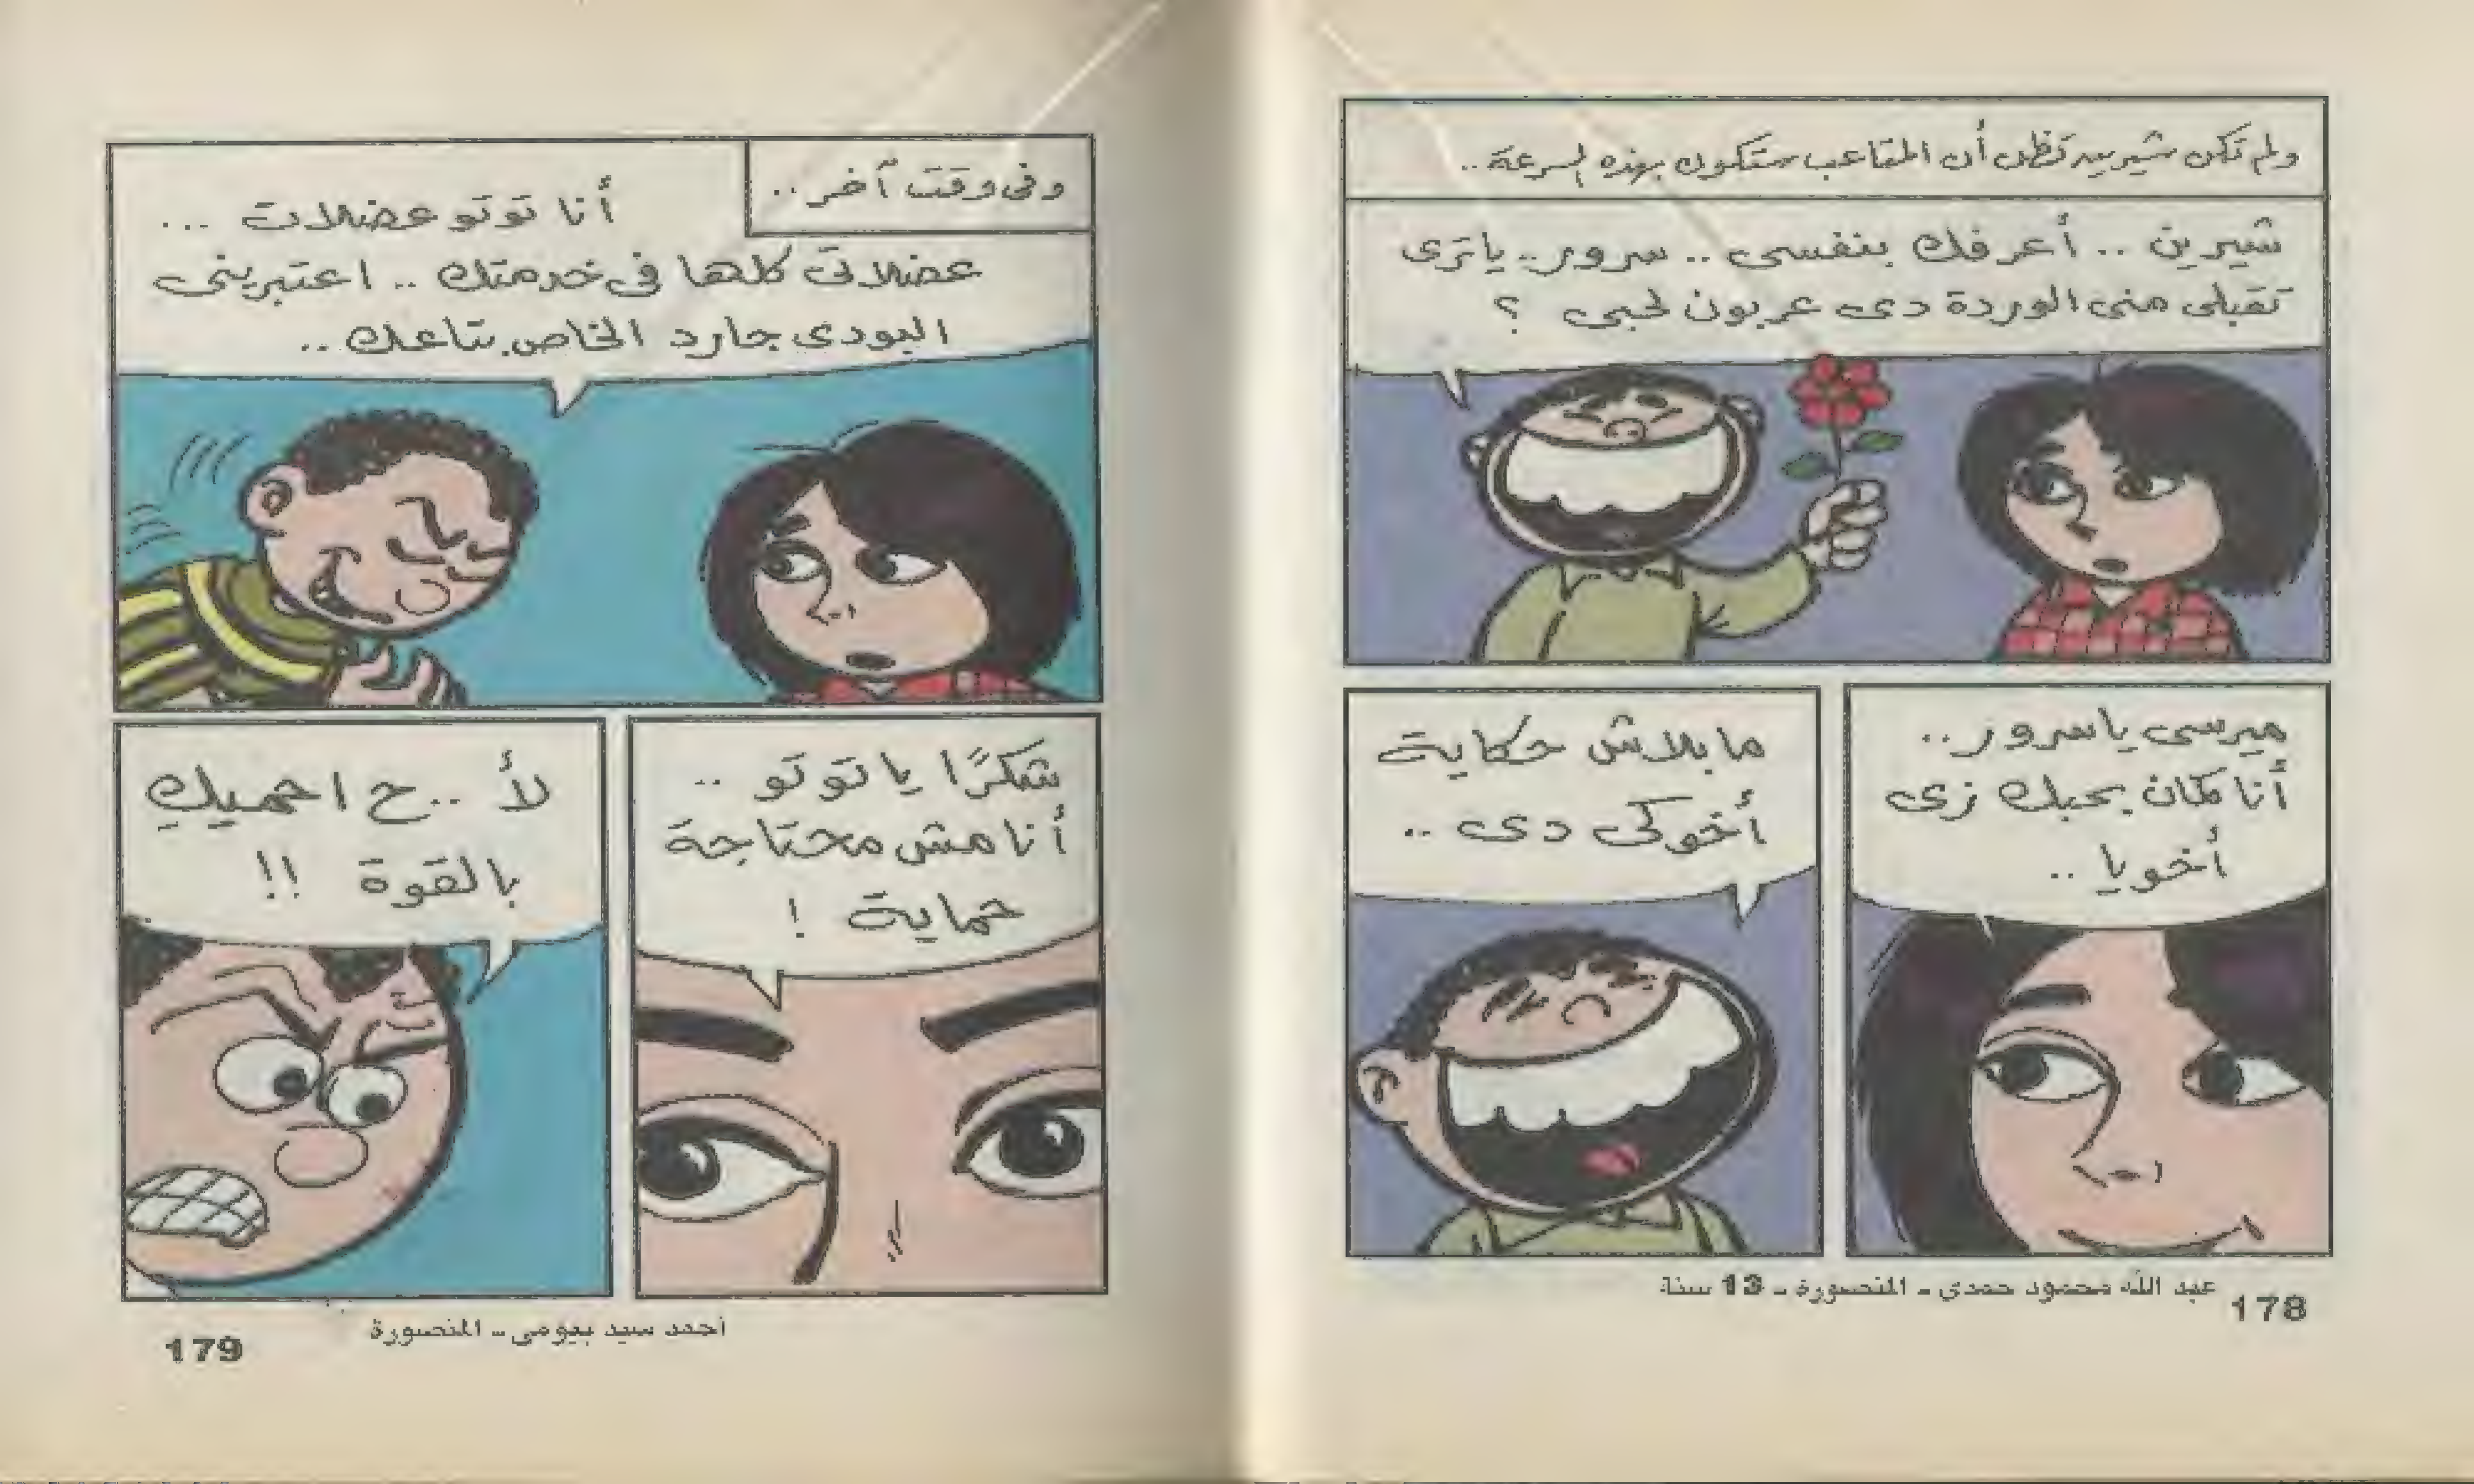 ولم تكن شيرين تظن أن المتاعب ستكون بهذه السرعة..
شيرين .. أعرفك بنفسى .. سرور.. ياترى
تقبلى منى الوردة دى عربون لحبى ؟
ميرسى ياسرور..
أنا كمان بحبك زى
أخويا ..
ما بلاش حكاية
أخوكى دى ..
عبد الله محمود حمدى - المنصورة - 13 سنة
178
وفى وقت آخر..
أنا توتو عضلات ...
عضلاتى كلها فى خدمتك .. اعتبرينى
البودى جارد الخاص بتاعك ..
شكرًا يا توتو ..
أنا مش محتاجة
حماية !
لأ .. ح احميكِ
بالقوة !!
أحمد سيد بيومى - المنصورة
179